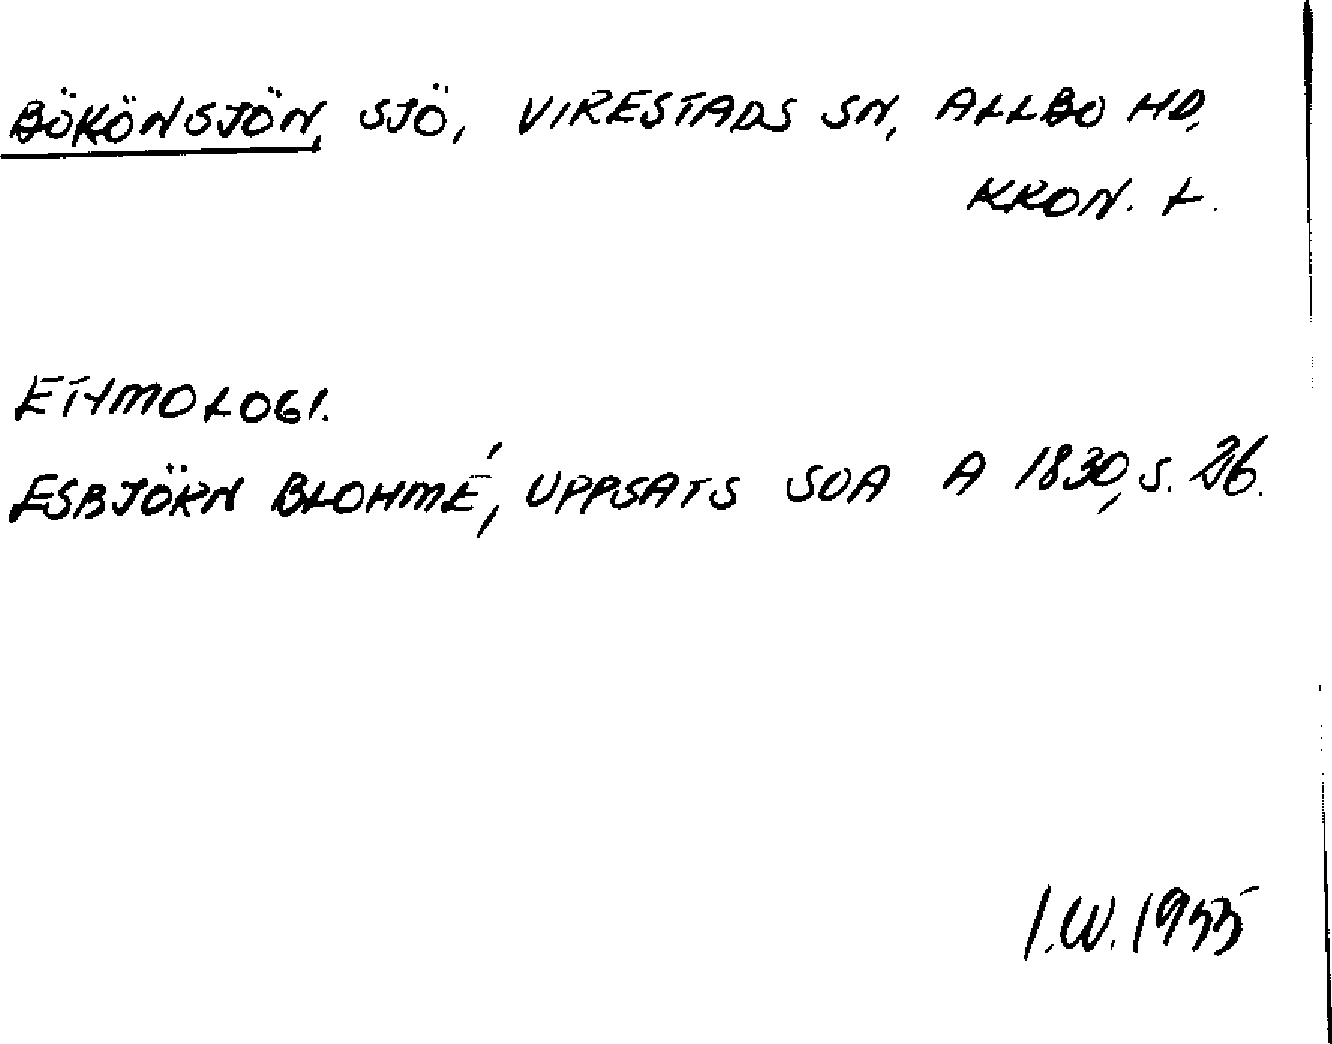 BÖKÖNSJÖN, SJÖ, VIRESTADS SN, ALLBO HD,
KRON. L.
ETYMOLOGI.
ESBJÖRN BLOHMÉ, UPPSATS SOA A 1830, S. 26.
I.W. 1955